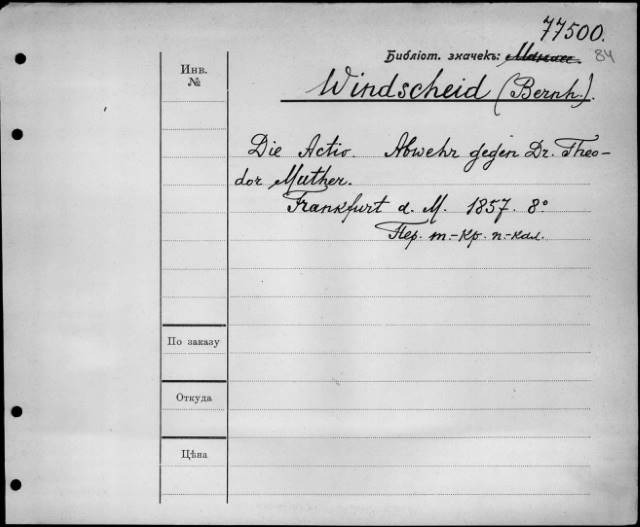 77500.
Библіот. значекъ: 84
Инв.
№
Windscheid (Bernh.).
Die Actio. Abwehr gegen Dr. Theo-
dor Muther.
Frankfurt a. M. 1857. 8°
Пер. т.-кр. п.-кал.
По заказу
Откуда
Цѣна